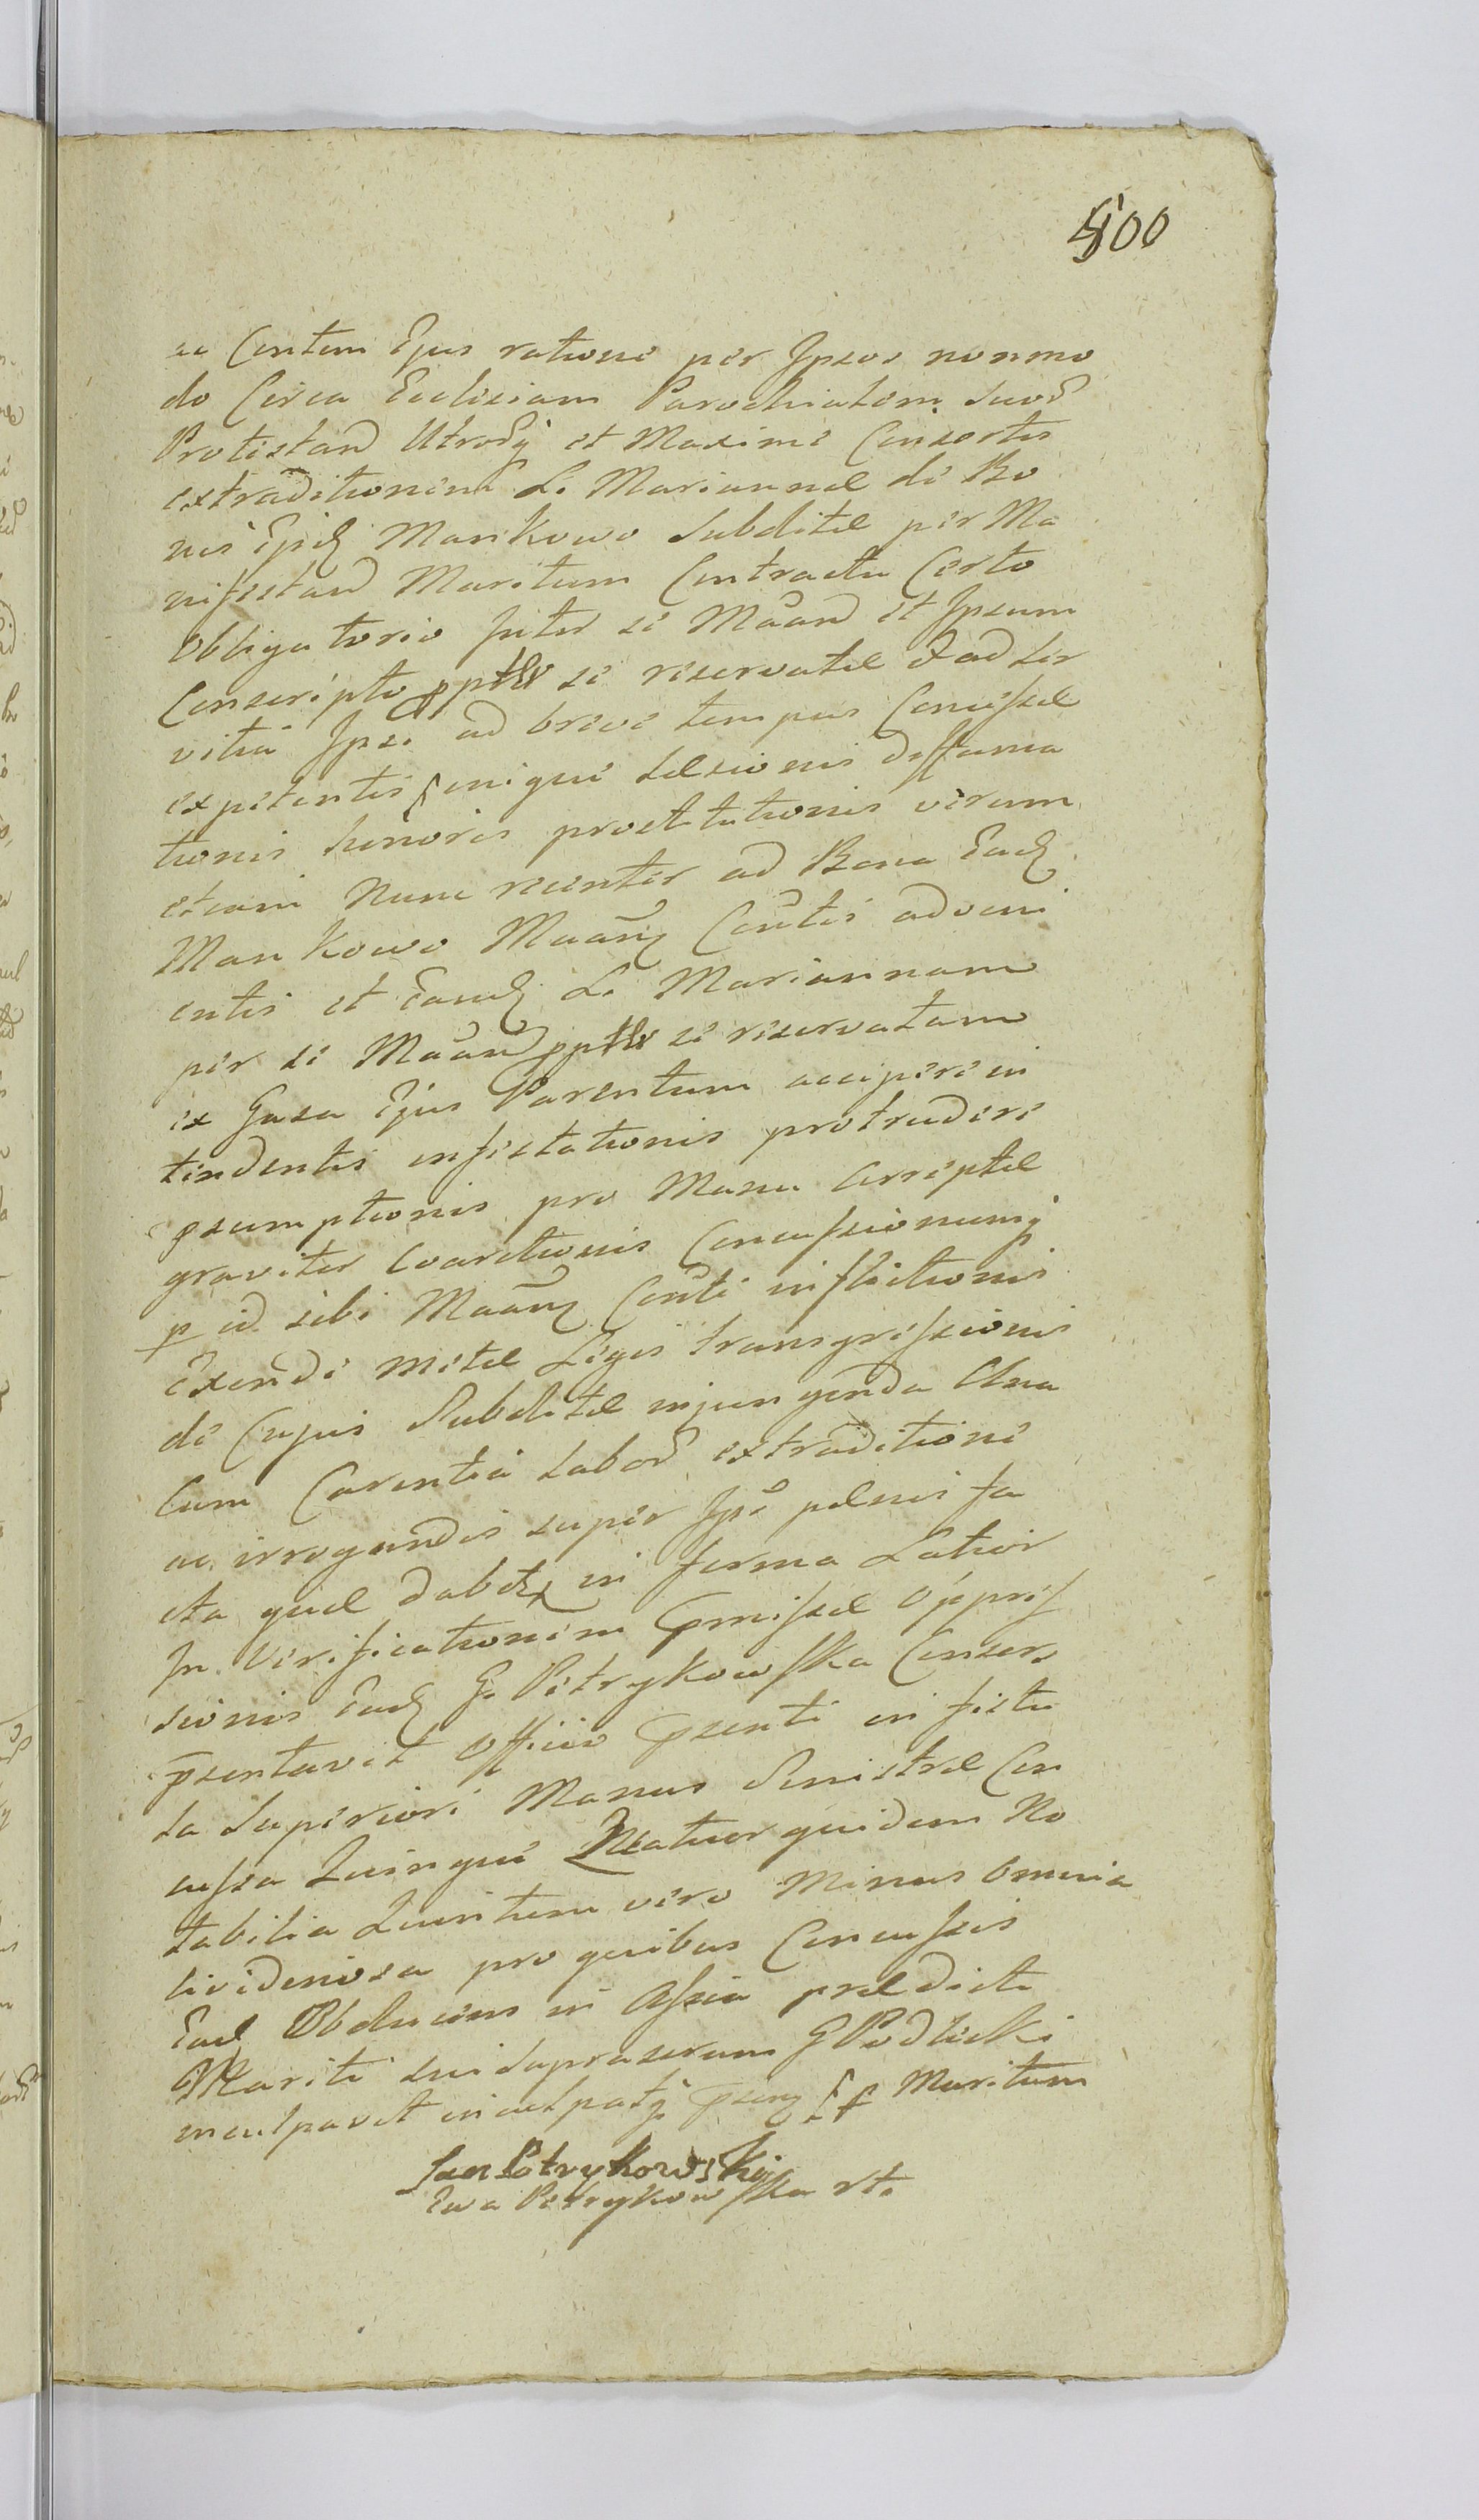 400
ac Contem Ejus ratione per Ipsos nonmo
do Circa Ecclesiam Parochialem suod
Protestand Utrosq et Maxime Consortis
extraditionem L. Mariannae de Bo
nis Ejusd Mankowo Subditae per Ma
nifestand Maritum Contractu Certo
Obligatorio Inter se Maand et Ipsum
Conscripto se reservatae et ad ser
vitia Ipsi ad breve tempus Concessae
expetentis enique laesionis deffama
tionis honoris prostitutionis verum
etiam Nunc recenter ad Bona Ead
Mankowo Maanq Contis adveni
entis et Eand L. Mariannam
per se Maand se reservatam
ex Gaza Ejus Parentum accipere in
tendentis infestationis protrudere
psumptionis pro Manu Arreptae
graviter Coarctionis Concussionumq
p id sibi Maanq Conti inflictionis
Exendi metae Legis transgressionis
de Cujus Subditae injungenda Una
Cum Carentia labod extraditione
ac irrogandis super Ipso paenis fa
cta quae dabtr in forma Latior
In Verificationem pmissae Oppres
sionis Ead G. Petrykowska Consors
psentavit Officio psenti in sistu
la Superiori Manus Sinistrae Con
cussa Quinque Quatuor quidem No
tabilia Quintum vero Minus Omnia
lividinosa pro quibus Concussis
Ead Obducens in Assia praedicti
Mariti sui supraserum G Podlecki
inculpavit inculpatq psenq Maritum
Jan Petrykowski
Ewa Petrykowska